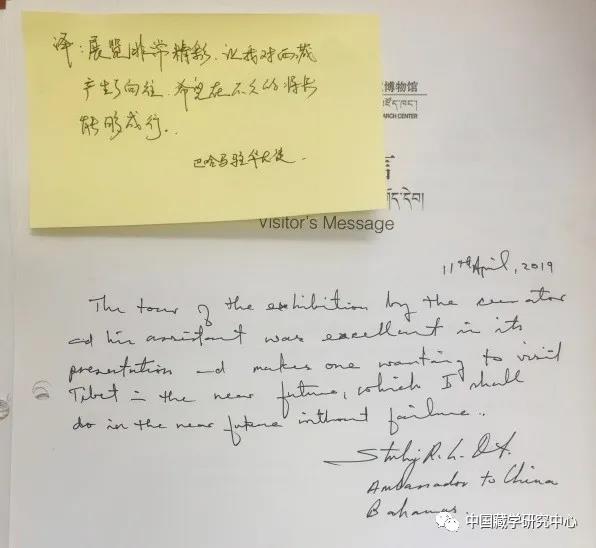 译：展览非常精彩，让我对西藏
产生了向往，希望在不久的将来
能够成行．
巴哈马驻华大使．
博物馆
ARCH CENTER
言
Visitor's Message
11th April, 2019
The tour of the exhibition by the
and his assistant was excellent in its
presentation and makes one wanting to visit
Tibet in the near future, which I shall
do in the near future without failure..
Ambassador to China
Bahamas
中国藏学研究中心